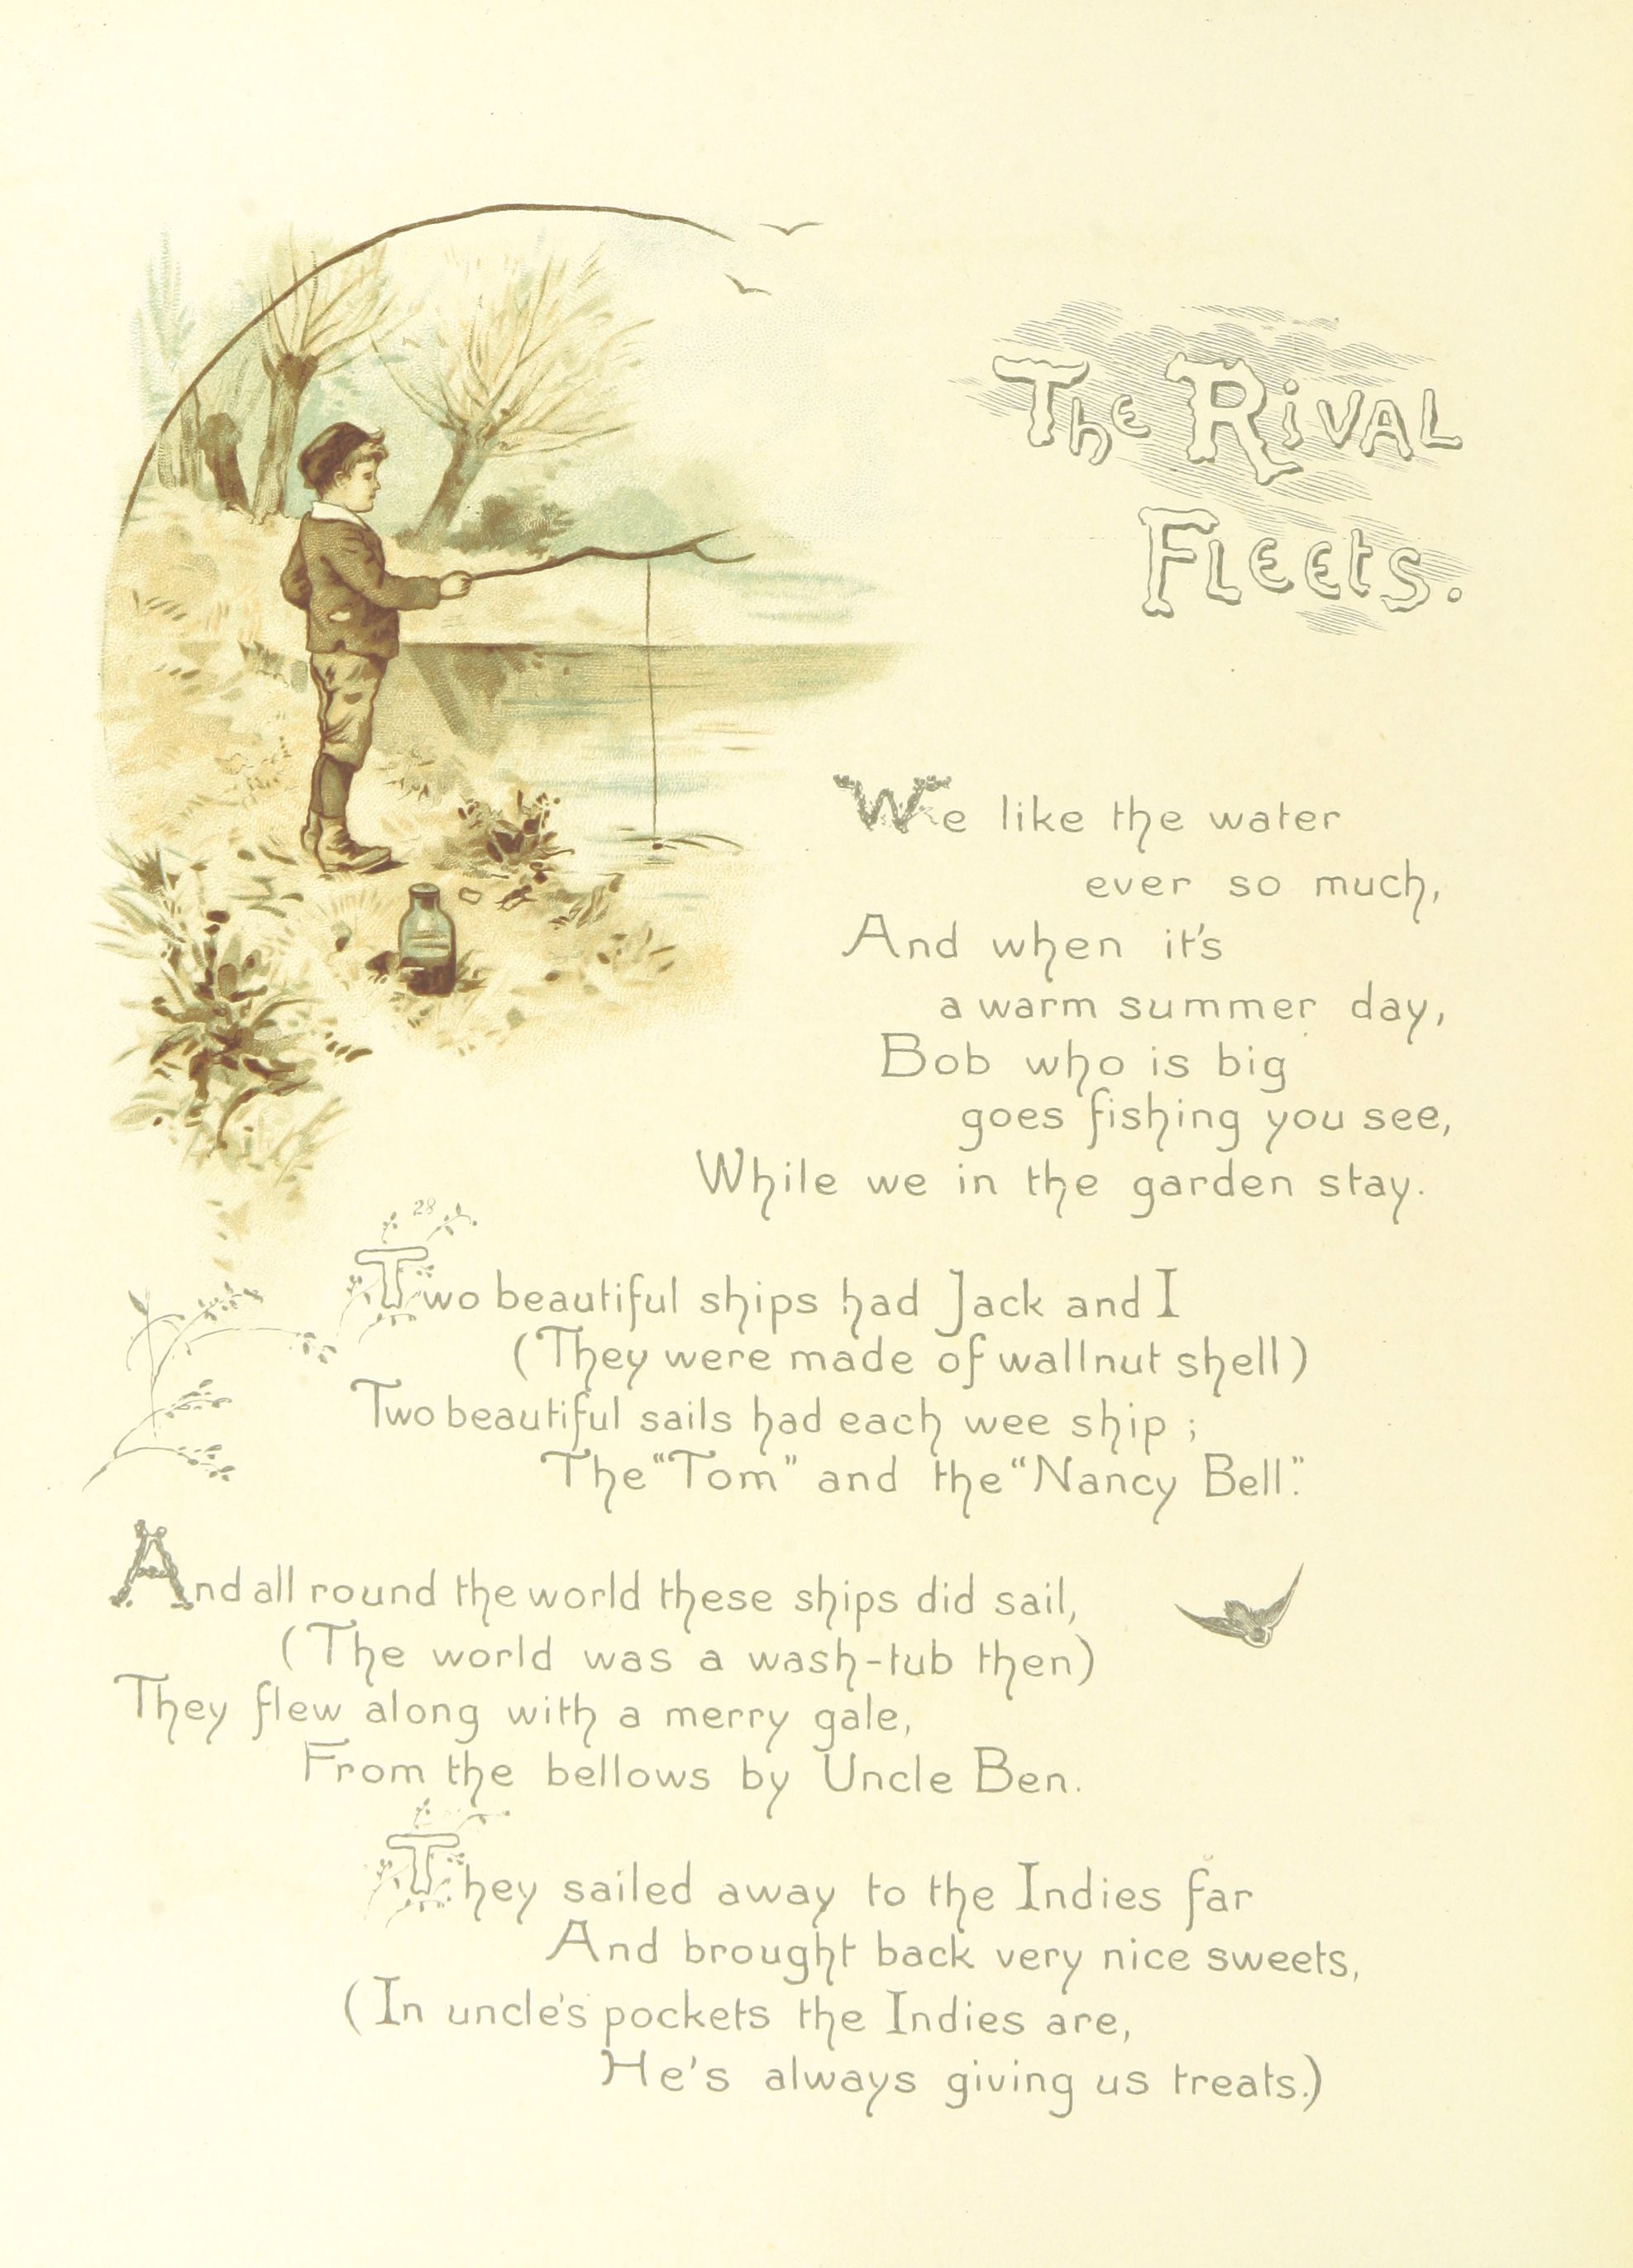 The Rival
Fleets.
We like the water
ever so much,
And when it's
a warm summer day,
Bob who is big
goes fishing you see,
While we in the garden stay.
28
Two beautiful ships had Jack and I
(They were made of wallnut shell)
Two beautiful sails had each wee ship ;
The "Tom" and the "Nancy Bell".
And all round the world these ships did sail,
(The world was a wash-tub then)
They flew along with a merry gale,
From the bellows by Uncle Ben.
They sailed away to the Indies far
And brought back very nice sweets,
(In uncle's pockets the Indies are,
He's always giving us treats.)